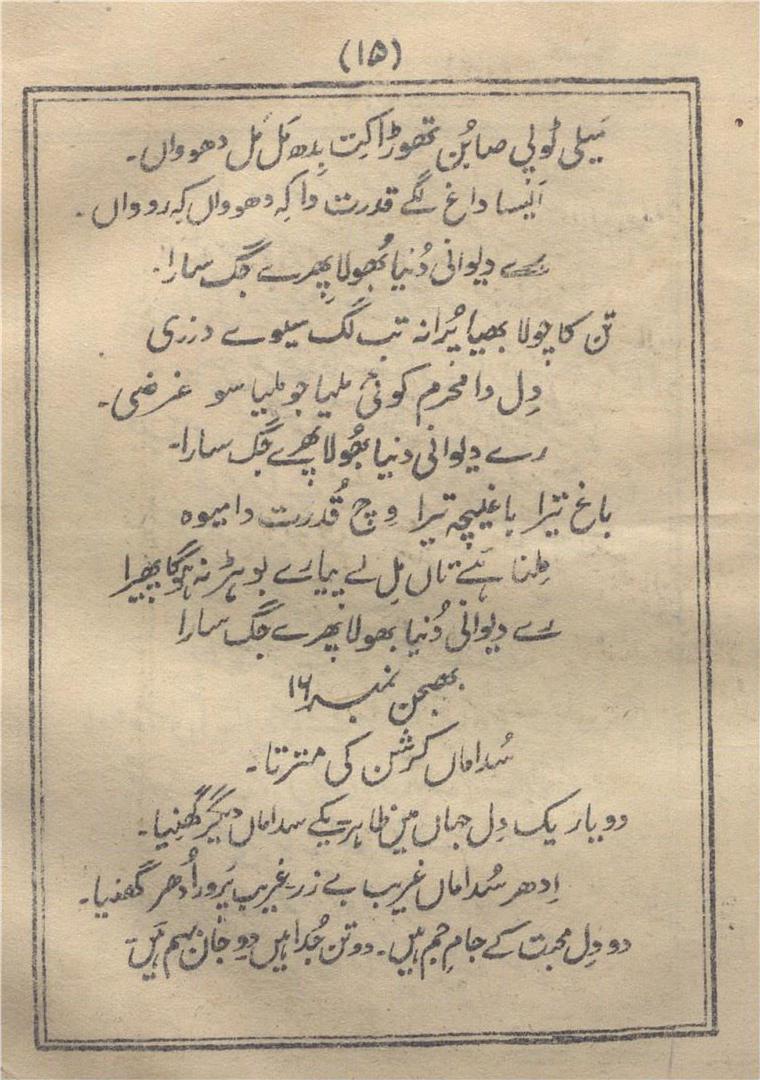 (۱۵)
مَیلی ٹوپی صابُن تھوڑا کِت بِدھ مَل مَل دھوواں۔
اَیسا داغ لگے قدرت دا کِہ دھوواں کِہ روواں۔
رے دیوانی دُنیا بُھولا پِھرے جگ سارا۔
تن کا چولا بھیا پُرانہ تب لگ سیوے درزی
دِل دا محرم کوئی ملیا جو ملیا سو غرضی۔
رے دیوانی دنیا بُھولا پھرے جگ سارا۔
باغ تیرا باغیچہ تیرا وِچ قُدرت دا میوہ
مِلنا ہَے تاں مِل لے پیارے بوہڑ نہ ہوگا پھیرا
رے دیوانی دُنیا بھولا پھرے جگ سارا
بھجن نمبر ۱۶
سُداماں کرشن کی مِترتا۔
دو یار یک دِل جہاں میں ظاہر یکے سداماں دیگر گھنیا۔
اِدھر سُداماں غریب بے زر۔ غریب پَرور اُدھر گھنیا۔
دو دِل محبت کے جامِ جم ہیں۔ دو تن جُدا ہیں دو جان بہم ہَیں